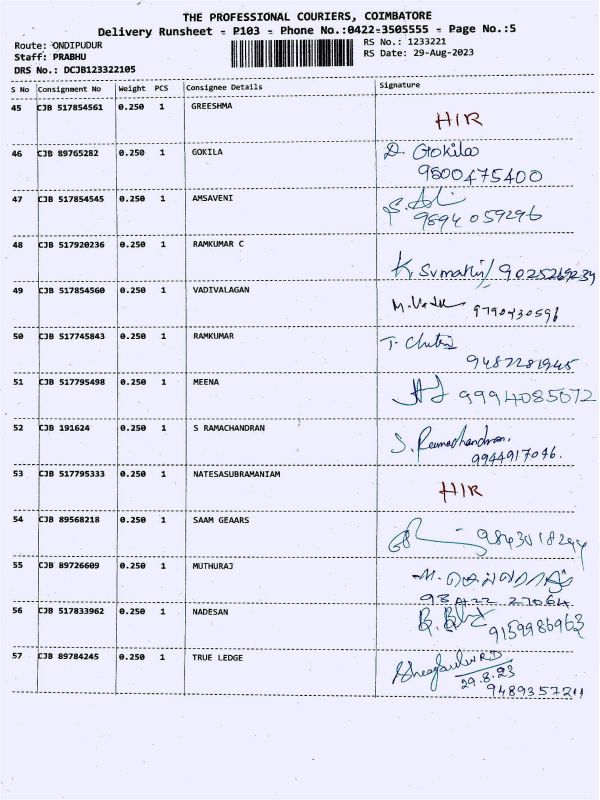 THE PROFESSIONAL COURIERS, COIMBATORE
Delivery Runsheet - P103 - Phone No.:0422-3505555 - Page No.:5
Route: ONDIPUDUR
RS No.: 1233221
Staff: PRABHU
RS Date: 29-Aug-2023
DRS No.: DCJB123322105
S No Consignment No Weight PCS Consignee Details Signature
45 CJB 517854561 0.250 1 GREESHMA
HIR
46 CJB 89765282 0.250 1 GOKILA D. Gokila
9500475400
47 CJB 517854545 0.250 1 AMSAVENI
9894059296
48 CJB 517920236 0.250 1 RAMKUMAR C
K. Sumathi 9025269234
49 CJB 517854560 0.250 1 VADIVALAGAN
9790430596
50 CJB 517745843 0.250 1 RAMKUMAR T. Chitra
9487281945
51 CJB 517795498 0.250 1 MEENA 9994085072
52 CJB 191624 0.250 1 S RAMACHANDRAN S. Ramachandran.
9944917046.
53 CJB 517795333 0.250 1 NATESASUBRAMANIAM
HIR
54 CJB 89568218 0.250 1 SAAM GEAARS
55 CJB 89726609 0.250 1 MUTHURAJ
93422 27064
56 CJB 517833962 0.250 1 NADESAN
9159986963
57 CJB 89784245 0.250 1 TRUE LEDGE
29.8.23
9489357211